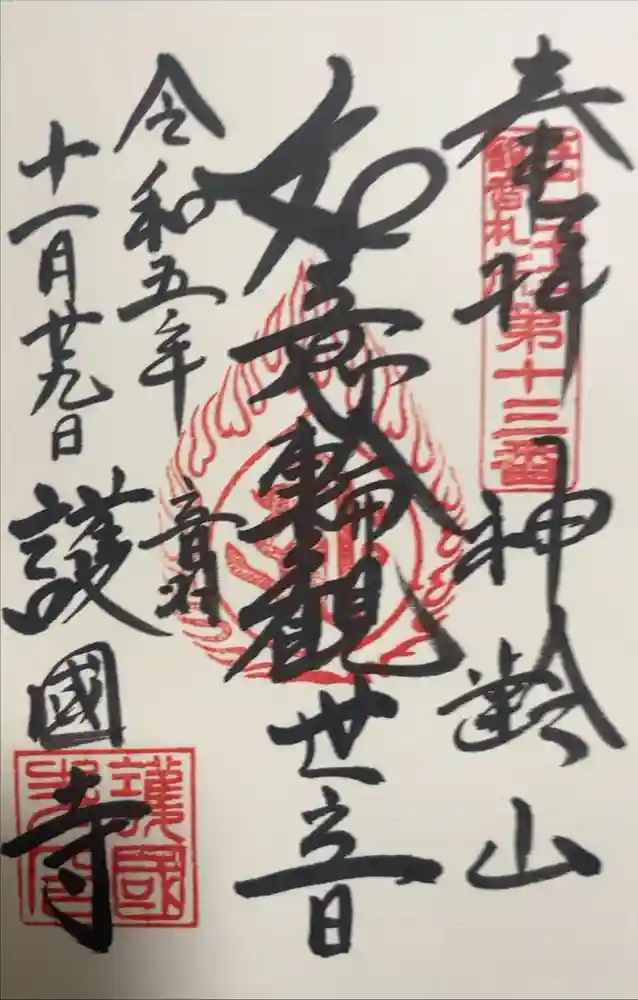 奉拝
神齢山
江戸三十三
観音札所第十三番
如意輪観世音
令和五年
十一月廿九日
音羽
護國寺
護國